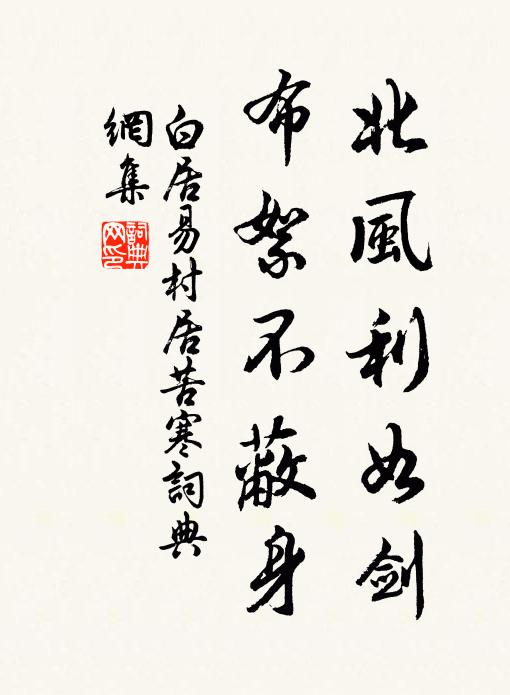 北風利如劍
布絮不蔽身
白居易村居苦寒詞典
網集
詞典
网印